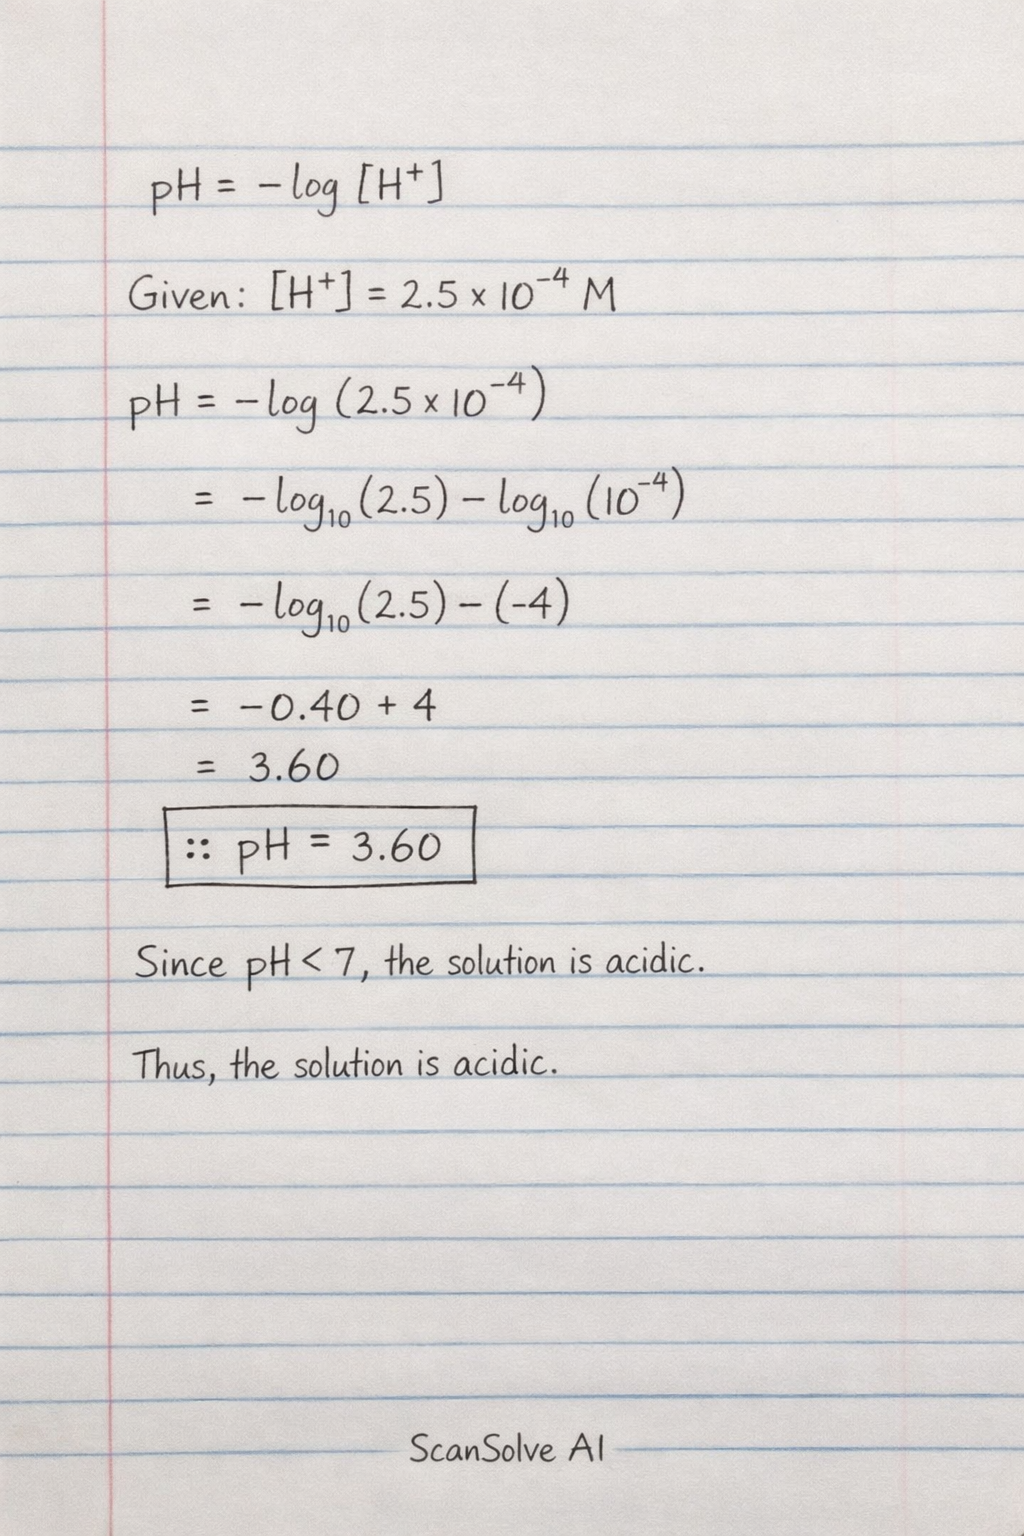 pH = −log [H⁺]
Given: [H⁺] = 2.5 × 10⁻⁴ M
pH = −log (2.5 × 10⁻⁴)
= −log₁₀(2.5) − log₁₀(10⁻⁴)
= −log₁₀(2.5) − (−4)
= −0.40 + 4
= 3.60
:: pH = 3.60
Since pH < 7, the solution is acidic.
Thus, the solution is acidic.
ScanSolve AI